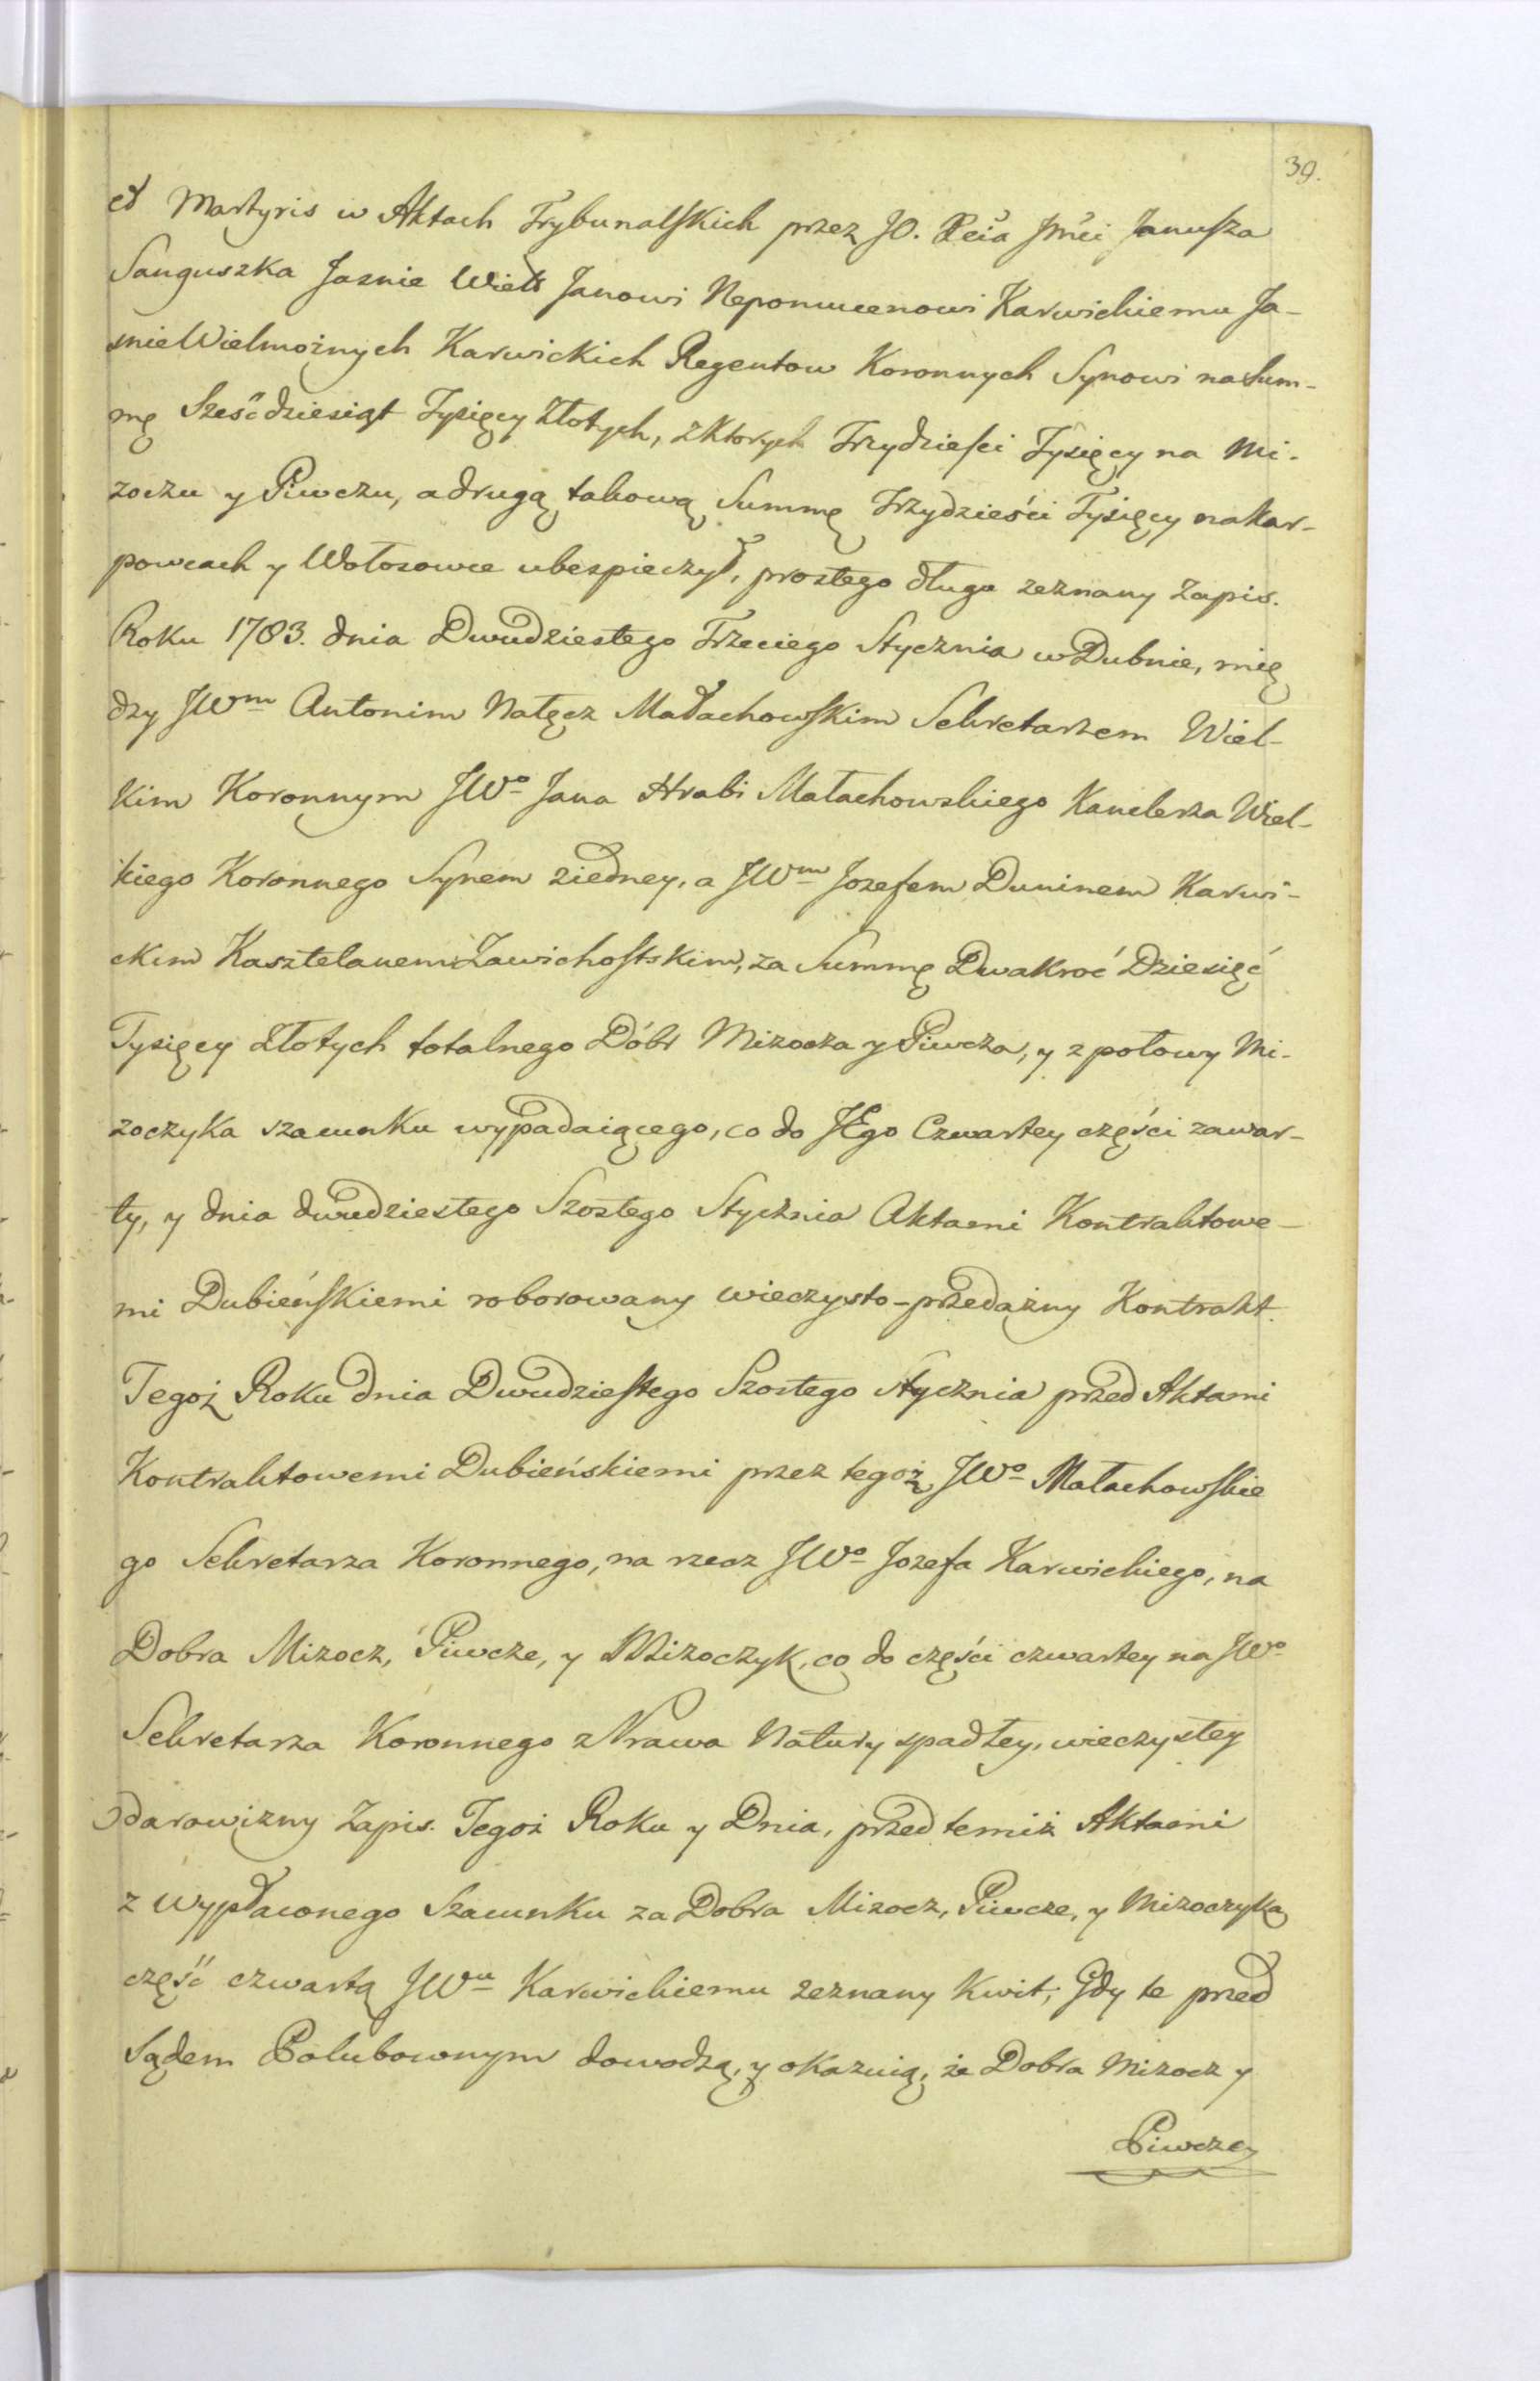 39.
et Martyris w Aktach Trybunalskich przez JO. Xcia Jmci Janusza
Sanguszka Jasnie Wielo Janowi Nepomucenowi Karwickiemu Ja-
snie Wielmożnych Karwickich Regentow Koronnych Synowi na Sum-
mę Sześćdziesiąt Tysięcy Złotych, z ktorych Trzydzieści Tysięcy na Mi-
zoczu y Piwczu, a drugą takową Summę Trzydzieści Tysięcy na Kar-
powcach y Wołosowce ubezpieczył, prostego długu zeznany Zapis.
Roku 1783. dnia Dwudziestego Trzeciego Stycznia w Dubnie, mię
dzy JWm Antonim Nałęcz Małachowskim Sekretarzem Wiel-
kim Koronnym JWo Jana Hrabi Małachowskiego Kanclerza Wiel-
kiego Koronnego Synem z iedney, a JWm Jozefem Duninem Karwi-
ckim Kasztelanem Zawichostskim, za Summę Dwakroć Dziesięć
Tysięcy Złotych totalnego Dóbr Mizocza y Piwcza, y z połowy Mi-
zoczyka szacunku wypadaiącego, co do JEgo Czwartey części zawar-
ty, y dnia dwudziestego Szostego Stycznia Aktami Kontraktowe-
mi Dubieńskiemi roborowany wieczysto-przedażny Kontrakt.
Tegoż Roku dnia Dwudziestego Szostego Stycznia przed Aktami
Kontraktowemi Dubieńskiemi przez tegoż JWo Małachowskie
go Sekretarza Koronnego, na rzecz JWo Jozefa Karwickiego, na
Dobra Mizocz, Piwcze, y Mizoczyk, co do części czwartey na JWo
Sekretarza Koronnego z Prawa Natury spadłey, wieczystey
darowizny Zapis. Tegoż Roku y Dnia, przed temiż Aktami
z wypłaconego Szacunku za Dobra Mizocz, Piwcze, y Mizoczyka
część czwartą JWu Karwickiemu zeznany Kwit; Gdy te przed
Sądem Polubownym dowodzą, y okazuią, że Dobra Mizocz y
Piwcze